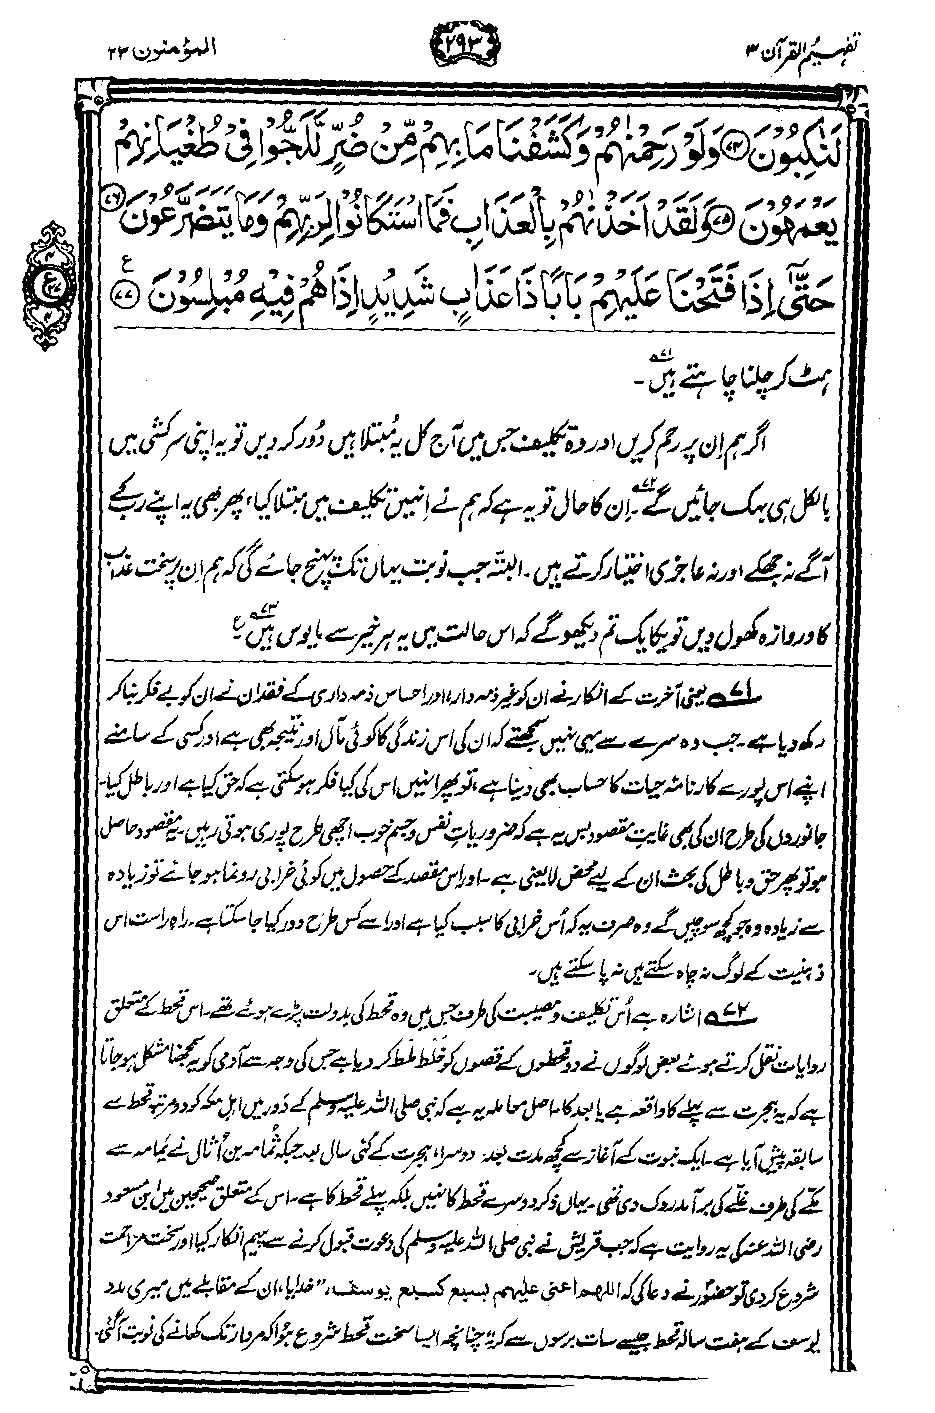 تفہیم القرآن ۳
۲۹۳
المؤمنون ۲۳
لَنٰكِبُوْنَ ﴿۷۴﴾ وَلَوْ رَحِمْنٰهُمْ وَكَشَفْنَا مَا بِهِمْ مِّنْ ضُرٍّ لَّلَجُّوْا فِيْ طُغْيَانِهِمْ
يَعْمَهُوْنَ ﴿۷۵﴾ وَلَقَدْ اَخَذْنٰهُمْ بِالْعَذَابِ فَمَا اسْتَكَانُوْا لِرَبِّهِمْ وَمَا يَتَضَرَّعُوْنَ ﴿۷۶﴾
حَتّٰٓى اِذَا فَتَحْنَا عَلَيْهِمْ بَابًا ذَا عَذَابٍ شَدِيْدٍ اِذَا هُمْ فِيْهِ مُبْلِسُوْنَ ﴿۷۷﴾ ع
ہٹ کر چلنا چاہتے ہیں۷۱۔
اگر ہم اِن پر رحم کریں اور وہ تکلیف جس میں آج کل یہ مُبتلا ہیں دُور کر دیں تو یہ اپنی سرکشی میں
بالکل ہی بہک جائیں گے۷۲۔ اِن کا حال تو یہ ہے کہ ہم نے اِنہیں تکلیف میں مبتلا کیا، پھر بھی یہ اپنے رب کے
آگے نہ جھکے اور نہ عاجزی اختیار کرتے ہیں۔ البتّہ جب نوبت یہاں تک پہنچ جائے گی کہ ہم اِن پر سخت عذاب
کا دروازہ کھول دیں تو یکایک تم دیکھو گے کہ اس حالت میں یہ ہر خیر سے مایوس ہیں۷۳ ع
۷۱ یعنی آخرت کے انکار نے ان کو غیر ذمہ دار، اور احساس ذمہ داری کے فقدان نے ان کو بے فکر بنا کر
رکھ دیا ہے۔ جب وہ سرے سے یہی نہیں سمجھتے کہ ان کی اس زندگی کا کوئی مآل اور نتیجہ بھی ہے اور کسی کے سامنے
اپنے اس پورے کارنامۂ حیات کا حساب بھی دینا ہے، تو پھر انہیں اس کی کیا فکر ہو سکتی ہے کہ حق کیا ہے اور باطل کیا۔
جانوروں کی طرح ان کی بھی غایتِ مقصود بس یہ ہے کہ ضروریاتِ نفس و جسم خوب اچھی طرح پوری ہوتی رہیں۔ یہ مقصود حاصل
ہو تو پھر حق و باطل کی بحث ان کے لیے محض لایعنی ہے۔ اور اس مقصد کے حصول میں کوئی خرابی رونما ہو جائے تو زیادہ
سے زیادہ وہ جو کچھ سوچیں گے وہ صرف یہ کہ اُس خرابی کا سبب کیا ہے اور اسے کس طرح دور کیا جا سکتا ہے۔ راہِ راست اس
ذہنیت کے لوگ نہ چاہ سکتے ہیں نہ پا سکتے ہیں۔
۷۲ اشارہ ہے اُس تکلیف و مصیبت کی طرف جس میں وہ قحط کی بدولت پڑے ہوئے تھے۔ اس قحط کے متعلق
روایات نقل کرتے ہوئے بعض لوگوں نے دو قحطوں کے قصوں کو خلط ملط کر دیا ہے جس کی وجہ سے آدمی کو یہ سمجھنا مشکل ہو جاتا
ہے کہ یہ ہجرت سے پہلے کا واقعہ ہے یا بعد کا۔ اصل معاملہ یہ ہے کہ نبی صلی اللہ علیہ وسلم کے دَور میں اہلِ مکہ کو دو مرتبہ قحط سے
سابقہ پیش آیا ہے۔ ایک نبوت کے آغاز سے کچھ مدت بعد۔ دوسرا، ہجرت کے کئی سال بعد جبکہ ثُمامہ بن اُثال نے یَمامہ سے
مکے کی طرف غلّے کی برآمد روک دی تھی۔ یہاں ذکر دوسرے قحط کا نہیں بلکہ پہلے قحط کا ہے۔ اس کے متعلق صحیحین میں ابن مسعود
رضی اللہ عنہ کی یہ روایت ہے کہ جب قریش نے نبی صلی اللہ علیہ وسلم کی دعوت قبول کرنے سے پیہم انکار کیا اور سخت مزاحمت
شروع کر دی تو حضورؐ نے دعا کی کہ اللھم اعنی علیھم بسبع کسبع یوسف، "خدایا، ان کے مقابلے میں میری مدد
یوسف کے ہفت سالہ قحط جیسے سات برسوں سے کر"۔ چنانچہ ایسا سخت قحط شروع ہوا کہ مردار تک کھانے کی نوبت آگئی۔